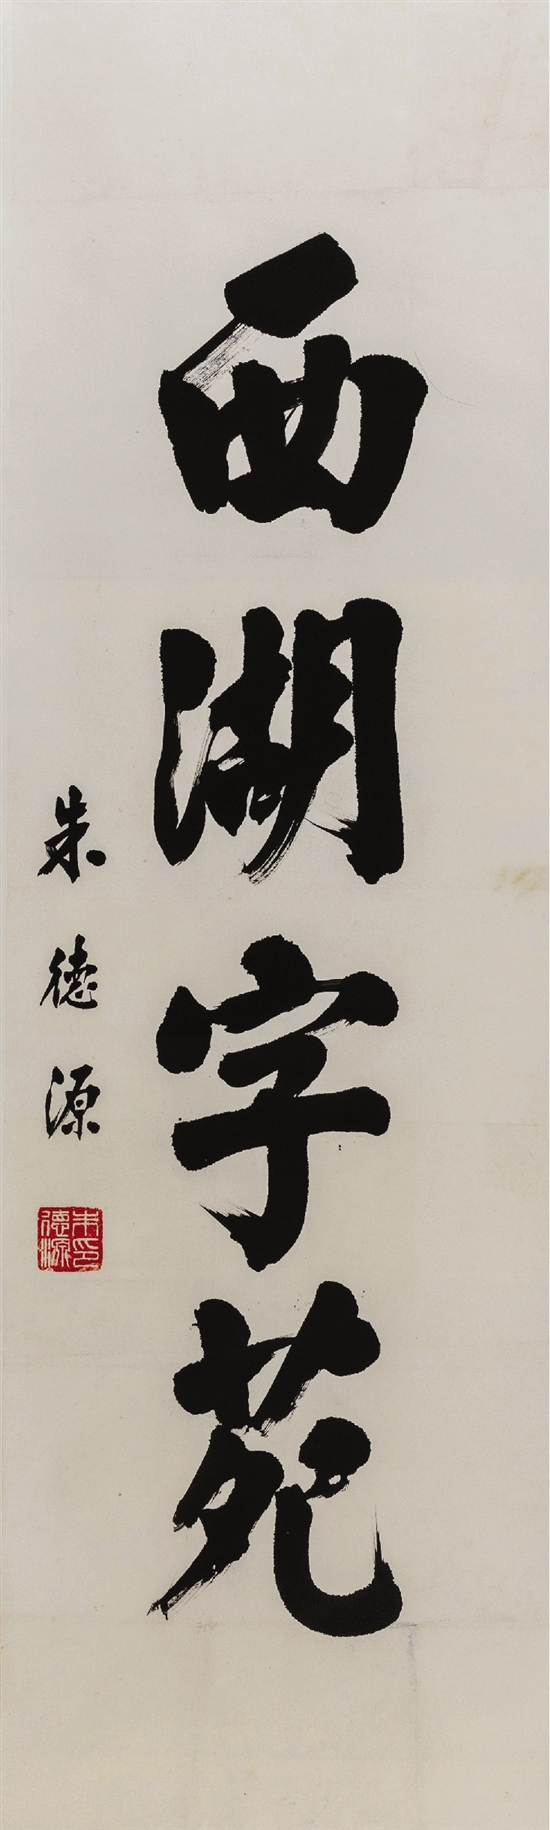 西湖字苑
朱德源
朱德源印